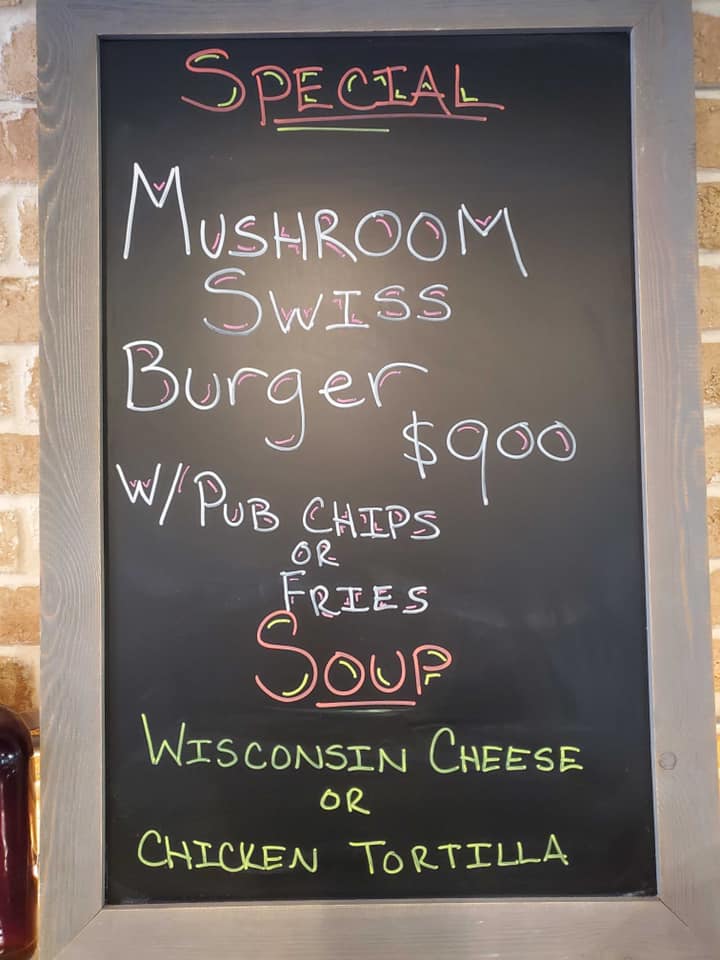 SPECIAL
MUSHROOM
SWISS
Burger
$900
W/ PUB CHIPS
OR
FRIES
SOUP
WISCONSIN CHEESE
OR
CHICKEN TORTILLA